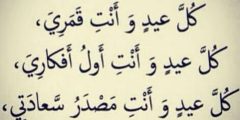 كُلَّ عيدٍ وَ أَنْتِ قَمَرِي،
كُلَّ عيدٍ وَ أَنْتِ أَولُ أَفكارِي،
كُلَّ عيدٍ وَ أَنْتِ مَصْدَرُ سَعادَتِي،